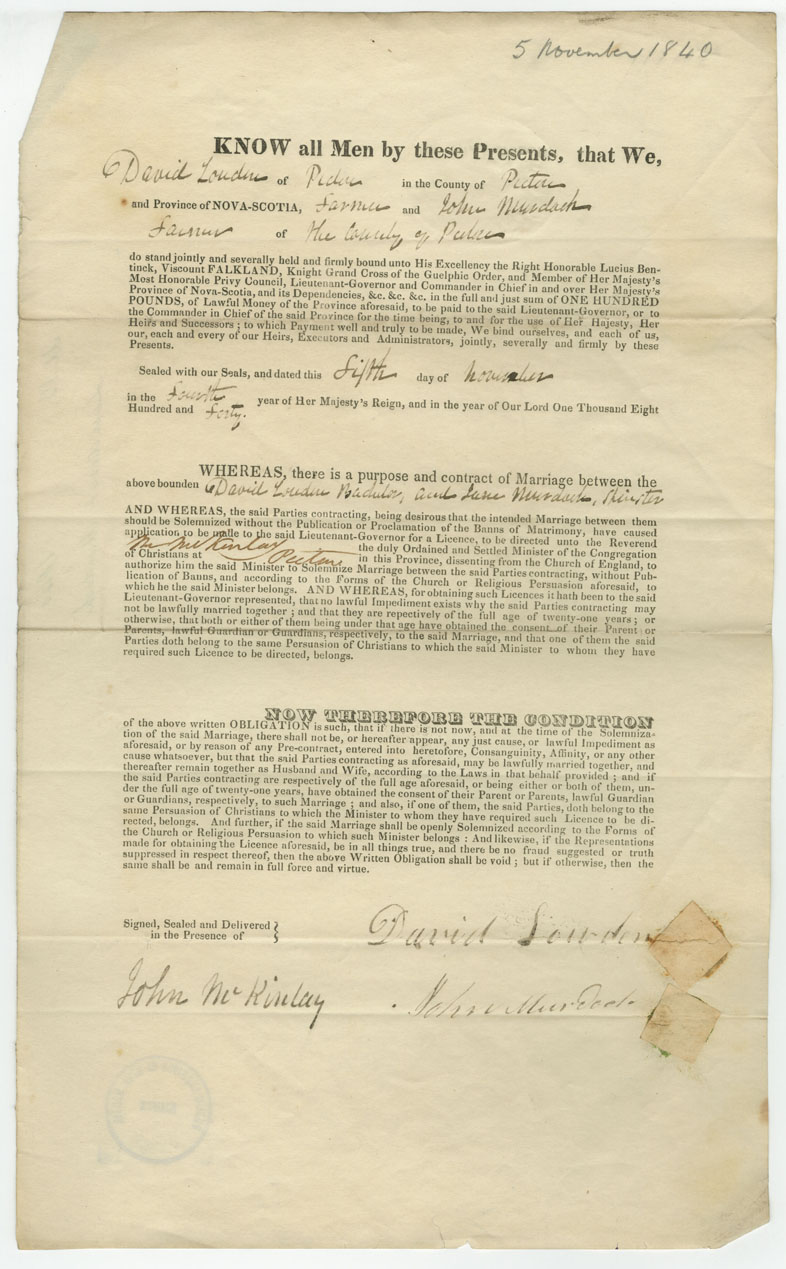 5 November 1840
KNOW all Men by these Presents, that We,
David Louden of Pictou in the County of Pictou
and Province of NOVA-SCOTIA, Farmer and John Murdoch
Farmer of the County of Pictou
do stand jointly and severally held and firmly bound unto His Excellency the Right Honorable Lucius Ben-
tinck, Viscount FALKLAND, Knight Grand Cross of the Guelphic Order, and Member of Her Majesty's
Most Honorable Privy Council, Lieutenant-Governor and Commander in Chief in and over Her Majesty's
Province of Nova-Scotia, and its Dependencies, &c. &c. &c. in the full and just sum of ONE HUNDRED
POUNDS, of Lawful Money of the Province aforesaid, to be paid to the said Lieutenant-Governor, or to
the Commander in Chief of the said Province for the time being, to and for the use of Her Hajesty, Her
Heirs and Successors ; to which Payment well and truly to be made, We bind ourselves, and each of us,
our, each and every of our Heirs, Executors and Administrators, jointly, severally and firmly by these
Presents.
Sealed with our Seals, and dated this Fifth day of November
in the Fourth year of Her Majesty's Reign, and in the year of Our Lord One Thousand Eight
Hundred and Forty.
WHEREAS, there is a purpose and contract of Marriage between the
above bounden David Louden Bachelor, and Jane Murdoch, Spinster
AND WHEREAS, the said Parties contracting, being desirous that the intended Marriage between them
should be Solemnized without the Publication or Proclamation of the Banns of Matrimony, have caused
application to be made to the said Lieutenant-Governor for a Licence, to be directed unto the Reverend
Mr McKinlay the duly Ordained and Settled Minister of the Congregation
of Christians at Pictou in this Province, dissenting from the Church of England, to
authorize him the said Minister to Solemnize Marriage between the said Parties contracting, without Pub-
lication of Banns, and according to the Forms of the Church or Religious Persuasion aforesaid, to
which he the said Minister belongs. AND WHEREAS, for obtaining such Licences it hath been to the said
Lieutenant-Governor represented, that no lawful Impediment exists why the said Parties contracting may
not be lawfully married together ; and that they are repectively of the full age of twenty-one years ; or
otherwise, that both or either of them being under that age have obtained the consent of their Parent or
Parents, lawful Guardian or Guardians, respectively, to the said Marriage, and that one of them the said
Parties doth belong to the same Persuasion of Christians to which the said Minister to whom they have
required such Licence to be directed, belongs.
NOW THEREFORE THE CONDITION
of the above written OBLIGATION is such, that if there is not now, and at the time of the Solemniza-
tion of the said Marriage, there shall not be, or hereafter appear, any just cause, or lawful Impediment as
aforesaid, or by reason of any Pre-contract, entered into heretofore, Consanguinity, Affinity, or any other
cause whatsoever, but that the said Parties contracting as aforesaid, may be lawfully married together, and
thereafter remain together as Husband and Wife, according to the Laws in that behalf provided ; and if
the said Parties contracting are respectively of the full age aforesaid, or being either or both of them, un-
der the full age of twenty-one years, have obtained the consent of their Parent or Parents, lawful Guardian
or Guardians, respectively, to such Marriage ; and also, if one of them, the said Parties, doth belong to the
same Persuasion of Christians to which the Minister to whom they have required such Licence to be di-
rected, belongs. And further, if the said Marriage shall be openly Solemnized according to the Forms of
the Church or Religious Persuasion to which such Minister belongs : And likewise, if the Representations
made for obtaining the Licence aforesaid, be in all things true, and there be no fraud suggested or truth
suppressed in respect thereof, then the above Written Obligation shall be void ; but if otherwise, then the
same shall be and remain in full force and virtue.
Signed, Sealed and Delivered
in the Presence of
David Lowden
John McKinlay
John Murdoch